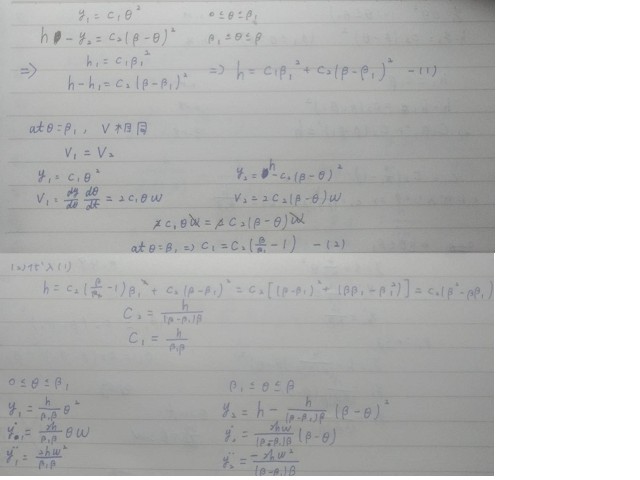 y₁ = c₁θ² 0 ≤ θ ≤ β₁
h - y₂ = c₂(β-θ)² β₁ ≤ θ ≤ β
⇒ h₁ = c₁β₁² ⇒ h = c₁β₁² + c₂(β-β₁)² -(1)
h-h₁ = c₂(β-β₁)²
at θ=β₁, V相同
V₁ = V₂
y₁ = c₁θ² y₂ = h-c₂(β-θ)²
V₁ = dy/dθ dθ/dt = 2c₁θω V₂ = 2c₂(β-θ)ω
2c₁θω = 2c₂(β-θ)ω
at θ=β₁ ⇒ c₁ = c₂(β/β₁ -1) -(2)
(2)代入(1)
h = c₂(β/β₁ -1)β₁² + c₂(β-β₁)² = c₂[(β-β₁)² + (ββ₁-β₁²)] = c₂(β²-ββ₁)
C₂ = h/(β-β₁)β
C₁ = h/β₁β
0 ≤ θ ≤ β₁ β₁ ≤ θ ≤ β
y₁ = h/β₁β θ² y₂ = h - h/(β-β₁)β (β-θ)²
ẏ₁ = 2h/β₁β θω ẏ₂ = 2hω/(β-β₁)β (β-θ)
ÿ₁ = 2hω²/β₁β ÿ₂ = -2hω²/(β-β₁)β